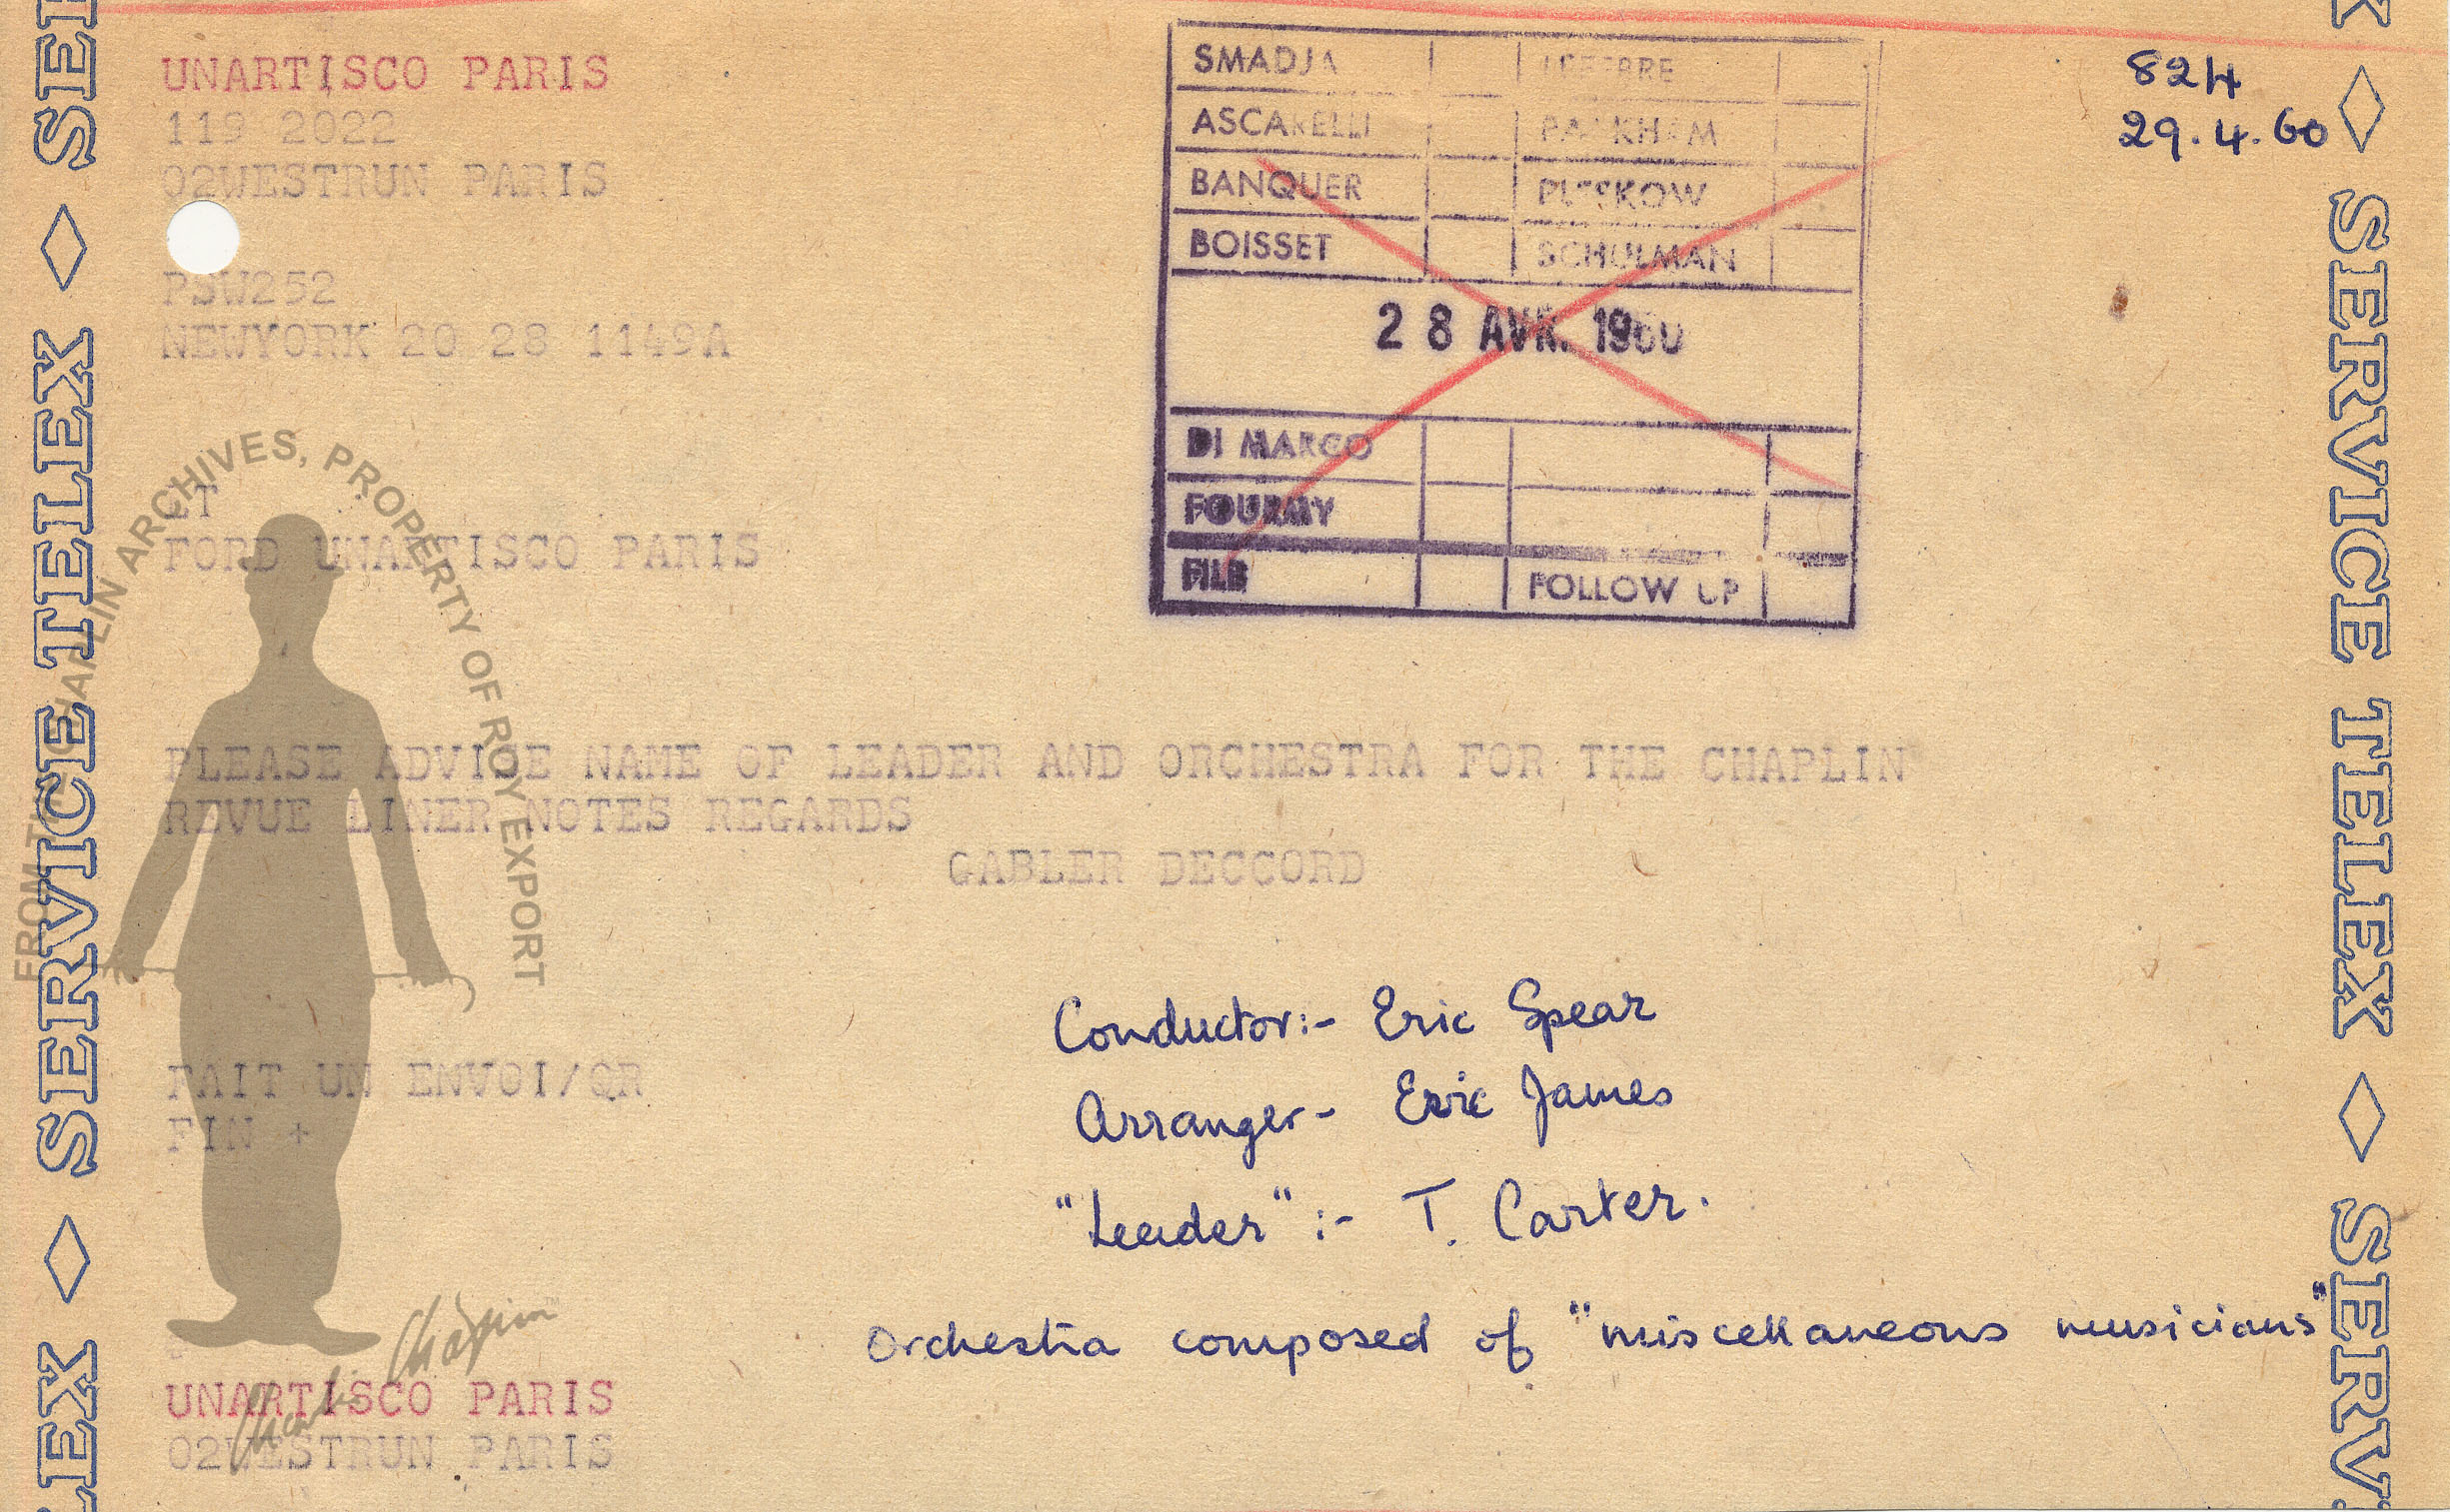 UNARTISCO PARIS
119 2022
02WESTRUN PARIS
PSW252
NEWYORK 20 28 1149A
LT
FORD UNARTISCO PARIS
SMADJA
ASCARELLI
BANQUER PLESKOW
BOISSET SCHULMAN
28 AVR. 1960
DI MARCO
FOURMY
FILE FOLLOW UP
824
29.4.60
PLEASE ADVISE NAME OF LEADER AND ORCHESTRA FOR THE CHAPLIN
REVUE LINER NOTES REGARDS
GABLER DECCORD
Conductor:- Eric Spear
Arranger- Eric James
"Leader" :- T. Carter.
Orchestra composed of "miscellaneous musicians"
FAIT UN ENVOI/QR
FIN +
UNARTISCO PARIS
02WESTRUN PARIS
SERVICE TELEX ◇ SERVICE TELEX ◇ SERVICE TELEX
SERVICE TELEX ◇ SERVICE TELEX ◇ SERV
FROM THE CHAPLIN ARCHIVES, PROPERTY OF ROY EXPORT
Charlie Chaplin™